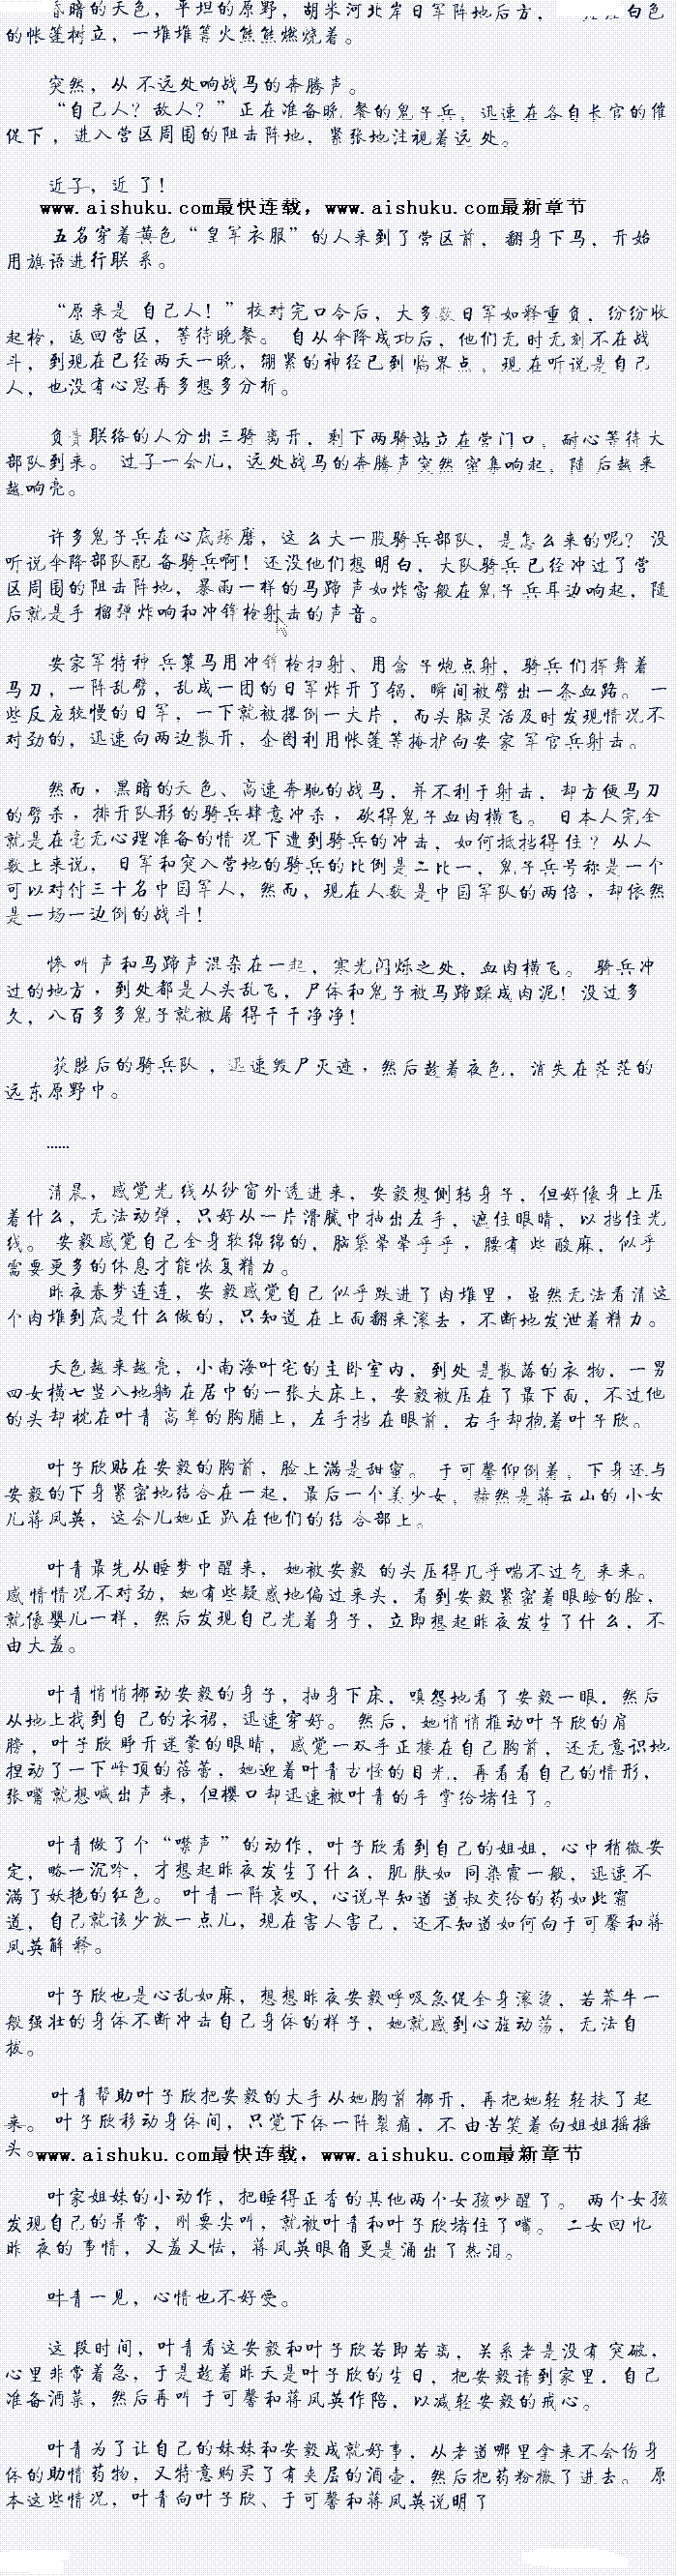 昏暗的天色，平坦的原野，胡米河北岸日军阵地后方，一    白色
的帐篷树立，一堆堆篝火熊熊燃烧着。
突然，从不远处响战马的奔腾声。
“自己人？敌人？”正在准备晚餐的鬼子兵，迅速在各自长官的催
促下，进入营区周围的阻击阵地，紧张地注视着远处。
近了，近了！
www.aishuku.com最快连载，www.aishuku.com最新章节
五名穿着黄色“皇军衣服”的人来到了营区前，翻身下马，开始
用旗语进行联系。
“原来是自己人！”校对完口令后，大多数日军如释重负，纷纷收
起枪，返回营区，等待晚餐。 自从伞降成功后，他们无时无刻不在战
斗，到现在已经两天一晚，绷紧的神经已到临界点，现在听说是自己
人，也没有心思再多想多分析。
负责联络的人分出三骑离开，剩下两骑站立在营门口，耐心等待大
部队到来。 过了一会儿，远处战马的奔腾声突然密集响起，随后越来
越响亮。
许多鬼子兵在心底琢磨，这么大一股骑兵部队，是怎么来的呢？没
听说伞降部队配备骑兵啊！还没他们想明白，大队骑兵已经冲过了营
区周围的阻击阵地，暴雨一样的马蹄声如炸雷般在鬼子兵耳边响起，随
后就是手榴弹炸响和冲锋枪射击的声音。
安家军特种兵策马用冲锋枪扫射、用盒子炮点射，骑兵们挥舞着
马刀，一阵乱劈，乱成一团的日军炸开了锅，瞬间被劈出一条血路。 一
些反应较慢的日军，一下就被撂倒一大片，而头脑灵活及时发现情况不
对劲的，迅速向两边散开，企图利用帐篷等掩护向安家军官兵射击。
然而，黑暗的天色、高速奔驰的战马，并不利于射击，却方便马刀
的劈杀，排开队形的骑兵肆意冲杀，砍得鬼子血肉横飞。 日本人完全
就是在毫无心理准备的情况下遭到骑兵的冲击，如何抵挡得住？从人
数上来说，日军和突入营地的骑兵的比例是二比一，鬼子兵号称是一个
可以对付三十名中国军人，然而，现在人数是中国军队的两倍，却依然
是一场一边倒的战斗！
惨叫声和马蹄声混杂在一起，寒光闪烁之处，血肉横飞。 骑兵冲
过的地方，到处都是人头乱飞，尸体和鬼子被马蹄踩成肉泥！没过多
久，八百多多鬼子就被屠得干干净净！
获胜后的骑兵队，迅速毁尸灭迹，然后趁着夜色，消失在茫茫的
远东原野中。
……
清晨，感觉光线从纱窗外透进来，安毅想侧转身子，但好像身上压
着什么，无法动弹，只好从一片滑腻中抽出左手，遮住眼睛，以挡住光
线。 安毅感觉自己全身软绵绵的，脑袋晕晕乎乎，腰有些酸麻，似乎
需要更多的休息才能恢复精力。
昨夜春梦连连，安毅感觉自己似乎跌进了肉堆里，虽然无法看清这
个肉堆到底是什么做的，只知道在上面翻来滚去，不断地发泄着精力。
天色越来越亮，小南海叶宅的主卧室内，到处是散落的衣物，一男
四女横七竖八地躺在居中的一张大床上，安毅被压在了最下面，不过他
的头却枕在叶青高耸的胸脯上，左手挡在眼前，右手却抱着叶子欣。
叶子欣贴在安毅的胸前，脸上满是甜蜜。 于可馨仰倒着，下身还与
安毅的下身紧密地结合在一起，最后一个美少女，赫然是蒋云山的小女
儿蒋凤英，这会儿她正趴在他们的结合部上。
叶青最先从睡梦中醒来，她被安毅的头压得几乎喘不过气来来。
感情情况不对劲，她有些疑惑地偏过来头，看到安毅紧密着眼睑的脸，
就像婴儿一样，然后发现自己光着身子，立即想起昨夜发生了什么，不
由大羞。
叶青悄悄挪动安毅的身子，抽身下床，嗔怨地看了安毅一眼，然后
从地上找到自己的衣裙，迅速穿好。 然后，她悄悄推动叶子欣的肩
膀，叶子欣睁开迷蒙的眼睛，感觉一双手正搂在自己胸前，还无意识地
捏动了一下峰顶的蓓蕾，她迎着叶青古怪的目光，再看看自己的情形，
张嘴就想喊出声来，但樱口却迅速被叶青的手掌给堵住了。
叶青做了个“噤声”的动作，叶子欣看到自己的姐姐，心中稍微安
定，略一沉吟，才想起昨夜发生了什么，肌肤如同染霞一般，迅速不
满了妖艳的红色。 叶青一阵哀叹，心说早知道道叔交给的药如此霸
道，自己就该少放一点儿，现在害人害己，还不知道如何向于可馨和蒋
凤英解释。
叶子欣也是心乱如麻，想想昨夜安毅呼吸急促全身滚烫，若莽牛一
般强壮的身体不断冲击自己身体的样子，她就感到心旌动荡，无法自
拔。
叶青帮助叶子欣把安毅的大手从她胸前挪开，再把她轻轻扶了起
来。 叶子欣移动身体间，只觉下体一阵裂痛，不由苦笑着向姐姐摇摇
头。
www.aishuku.com最快连载，www.aishuku.com最新章节
叶家姐妹的小动作，把睡得正香的其他两个女孩吵醒了。 两个女孩
发现自己的异常，刚要尖叫，就被叶青和叶子欣堵住了嘴。 二女回忆
昨夜的事情，又羞又怯，蒋凤英眼角更是涌出了热泪。
叶青一见，心情也不好受。
这段时间，叶青看这安毅和叶子欣若即若离，关系老是没有突破，
心里非常着急，于是趁着昨天是叶子欣的生日，把安毅请到家里，自己
准备酒菜，然后再叫于可馨和蒋凤英作陪，以减轻安毅的戒心。
叶青为了让自己的妹妹和安毅成就好事，从老道哪里拿来不会伤身
体的助情药物，又特意购买了有夹层的酒壶，然后把药粉撒了进去。 原
本这些情况，叶青向叶子欣、于可馨和蒋凤英说明了